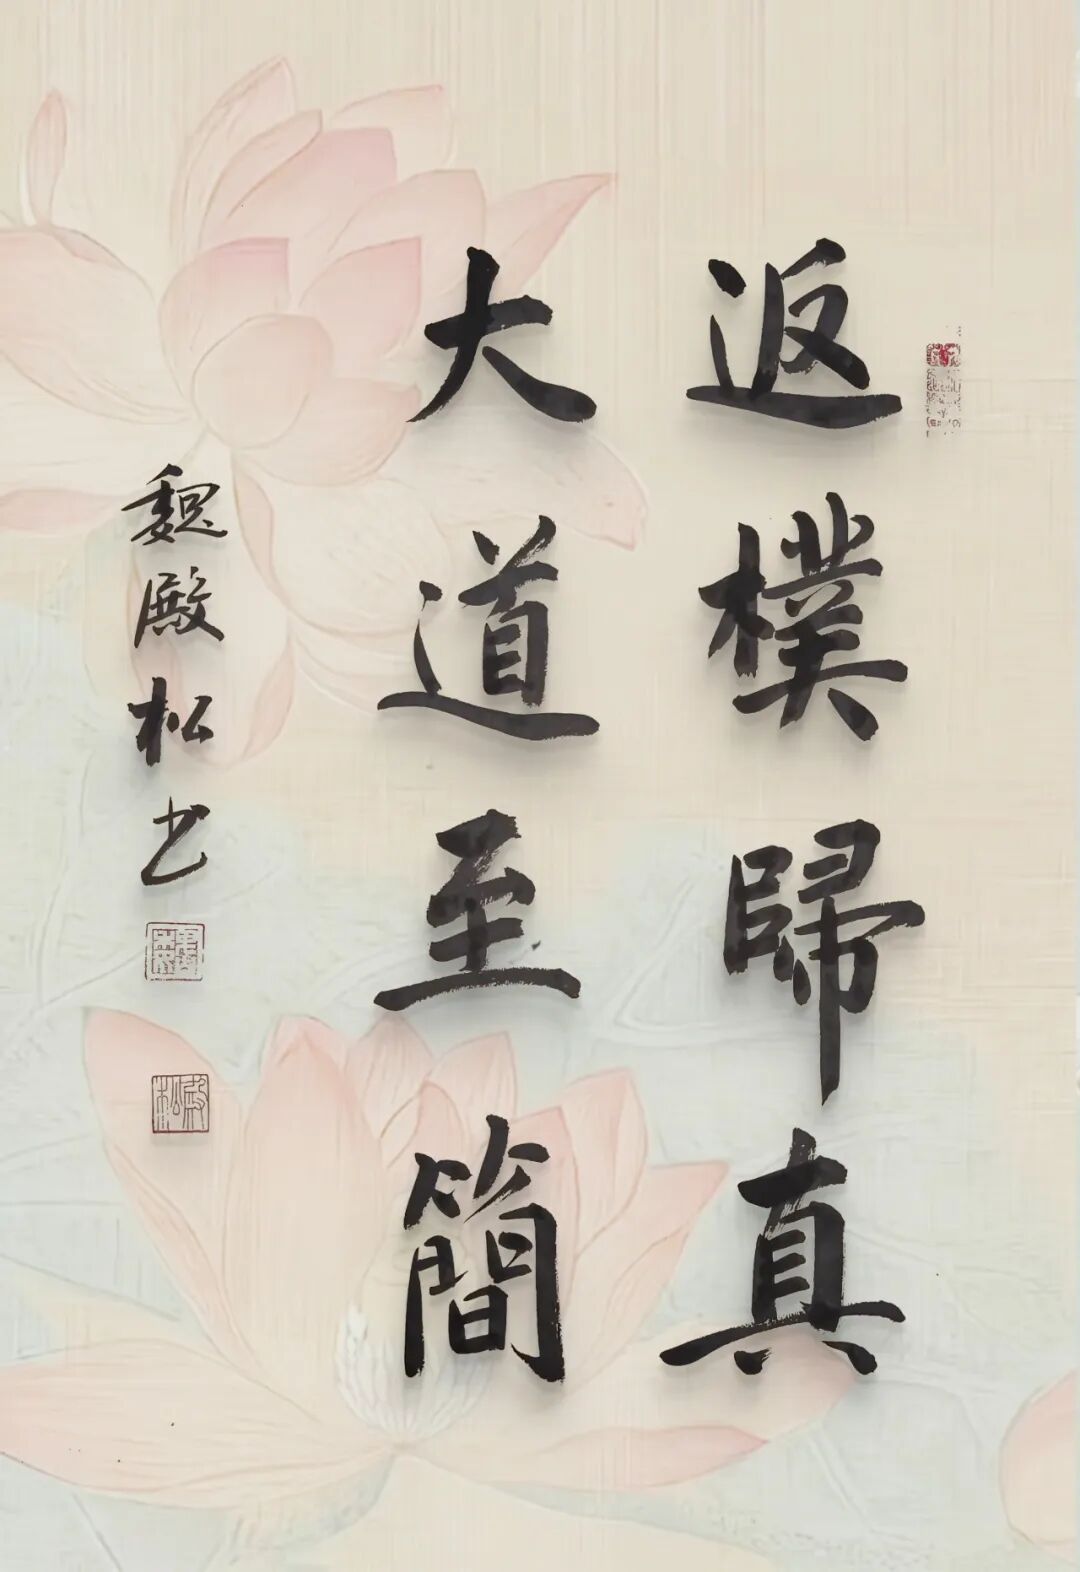 返樸歸真
大道至簡
魏殿松书
殿松